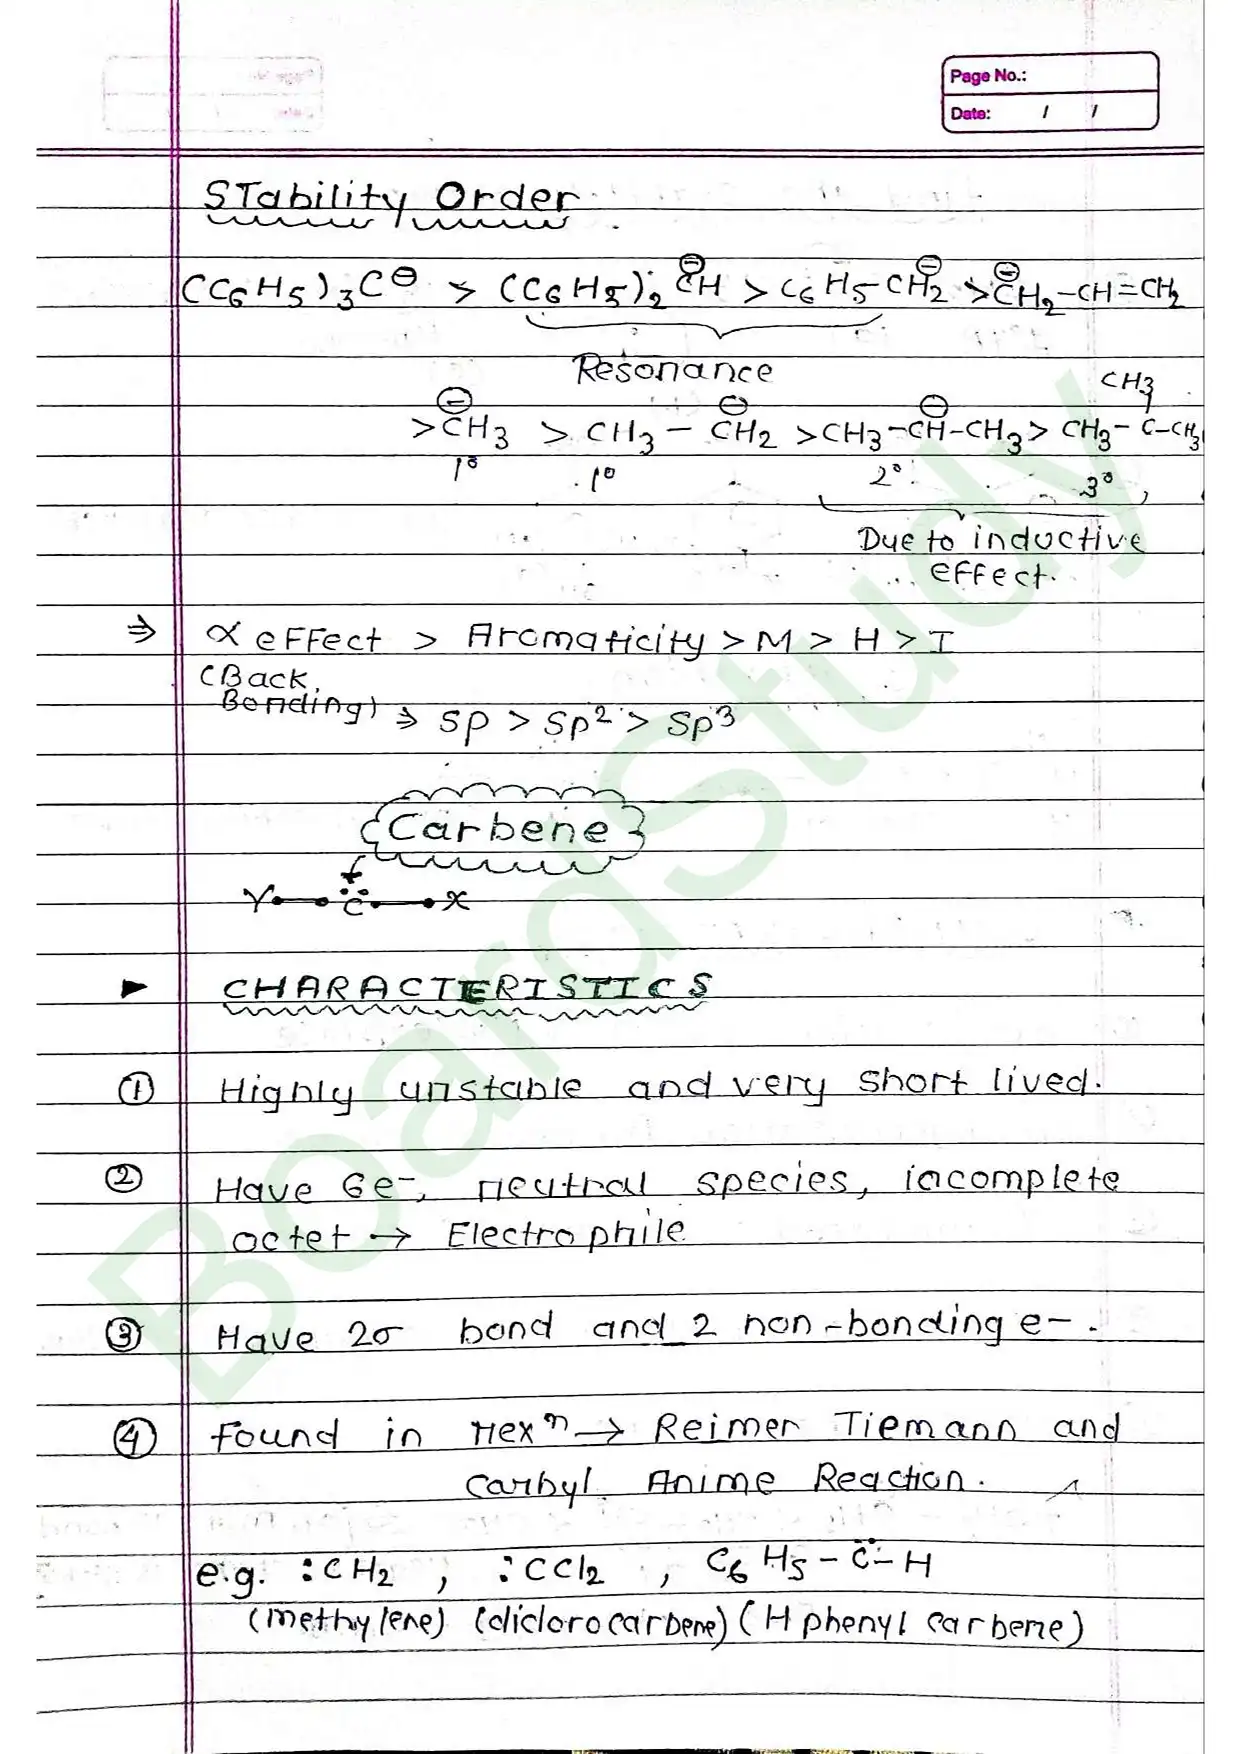 Page No.:
Date: / /
STability Order
(C6H5)3C⊖ > (C6H5)2 C⊖H > C6H5-C⊖H2 > C⊖H2-CH=CH2
Resonance
CH3
> C⊖H3 > CH3 - C⊖H2 > CH3-C⊖H-CH3 > CH3-C-CH3
1° 1° 2° 3°
Due to inductive
effect.
⇒ α effect > Aromaticity > M > H > I
(Back
Bonding) ⇒ sp > sp² > sp³
Carbene
Y—C̈—X
► CHARACTERISTICS
① Highly unstable and very short lived.
② Have 6e-, neutral species, incomplete
octet → Electrophile
③ Have 2σ bond and 2 non-bonding e-.
④ Found in rexⁿ → Reimer Tiemann and
Carbyl Anime Reaction.
e.g. :CH2 , :CCl2 , C6H5-C̈-H
(methylene) (diclorocarbene) (H phenyl carbene)
BoardStudy